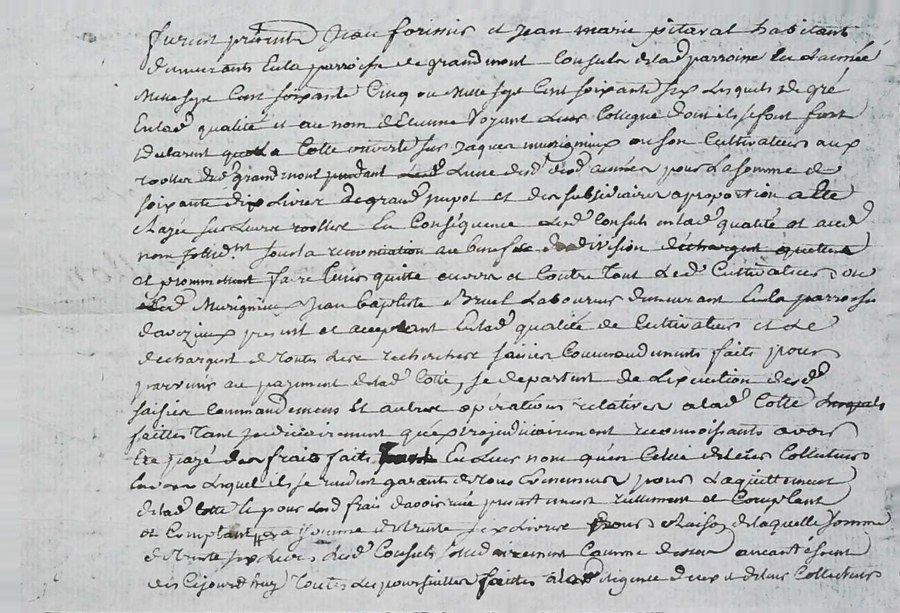 furent présents Jean forimis et Jean marie pitaval habitant
demeurants En la parroisse de grandmont Consuls de lad parroisse de L'année
Mille sept Cent soixante Cinq ou Mille sept Cent soixante six Lesquels de gré
En lad qualité et au nom d'Etienne Voyant Leur Collegue dont ils se font fort
declarent la Cotte ouverte sur Jaques murignieux ou son Cultivateur aux
rooller de grandmont pendant L'une des d années pour La somme de
soixante dix Livres de grand impot et des subsidiaires a proportion
sur Leurs roolles En Conséquence Lesd Consuls en lad qualité et aud
nom solid.mt sous la renonciation au benefice de division dechargent quittent
et promettent faire tenir quitte envers et Contre tout Led Cultivateur ou
Led Murignieux Jean Baptiste Bruel Laboureur demeurant En la parroisse
d'aveizieux present et acceptant En lad qualité de Cultivateur et Le
dechargent de toutes Les recherches saisies Commandements faits pour
parvenir au payement de lad Cotte, se departent de L'execution desd
saisies Commandemens Et autres opérations relatives a lad Cotte
faittes tant judiciairement qu'extrajudiciairement reconnoissants avoir
Ete payé des frais faits En Leur nom qu'en Celui de Leur Collecteur
Lequel ils se rendent garants pour L'aquittement
de lad Cotte et pour Lesd frais d'avoir reçu presentement réellement et Comptant
et Comptant La somme de trente six Livres Raison de laquelle somme
de trente six Livres Lesd Consuls Comme dessus
des Cejourd'huy toutes Les poursuittes faittes a la diligence d'eux et de leur Collecteur